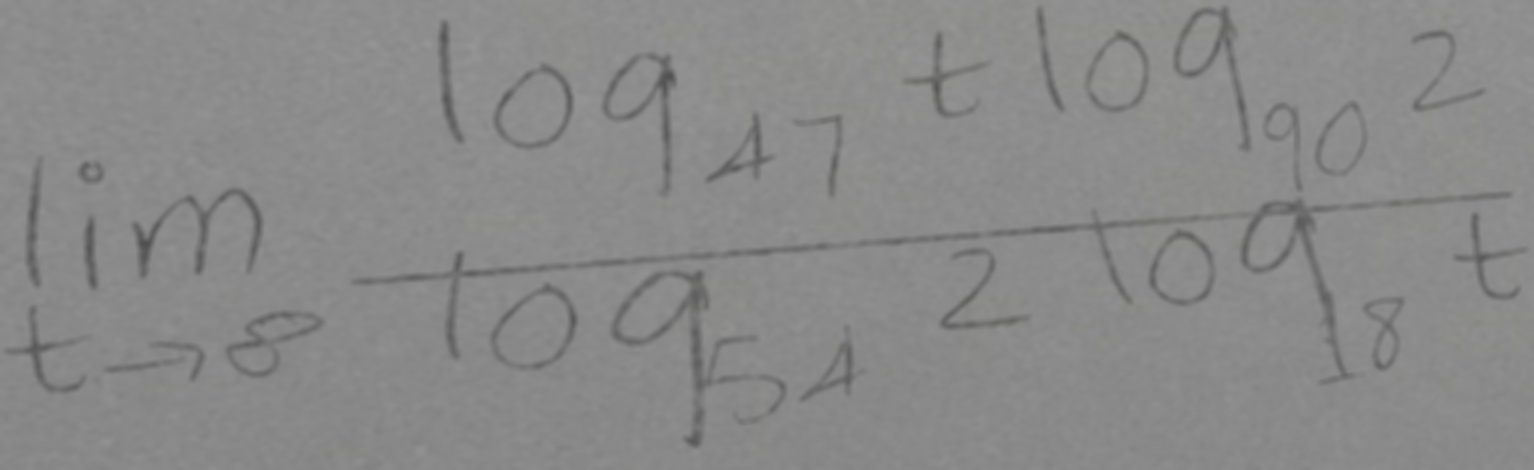 \lim_{t \to 8} \frac{\log_{47} t \log_{90} 2}{\log_{54} 2 \log_{18} t}